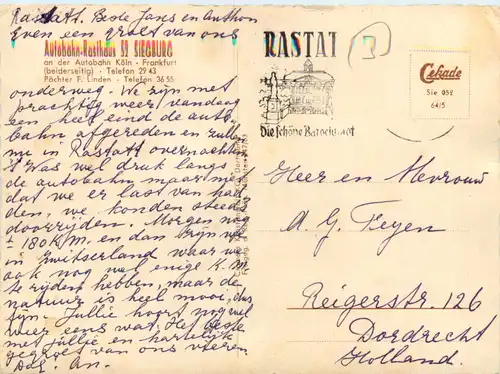 Rastatt. Beste Jans en Anthon
Even een groet van ons
Autobahn-Rasthaus 59 SIEGBURG
an der Autobahn Köln - Frankfurt
(beiderseitig) - Telefon 29 43
Pächter F. Linden - Telefon 36 55
onderweg. We zijn met
prachtig weer vandaag
een heel eind de auto
bahn afgereden en zullen
nu in Rastatt overnachten
't Was wel druk langs
de autobahn maar niet
dat we er last van had
den, we konden steeds
doorrijden. Morgen nog
± 180 K.M. en dan zijn we
in Zwitserland waar we
ook nog wel enige K.M.
te rijden hebben, maar de
natuur is heel mooi, dus
fijn. Jullie hoort nog wel
weer eens wat. Het beste
met jullie en hartelijk
gegroet van ons vieren
Dag. An.
RASTAT
Die schöne Barockstadt
Cekade
Sie 059
64/5
Heer en Mevrouw
A. G. Feyen
Reigerstr. 126
Dordrecht
Holland.